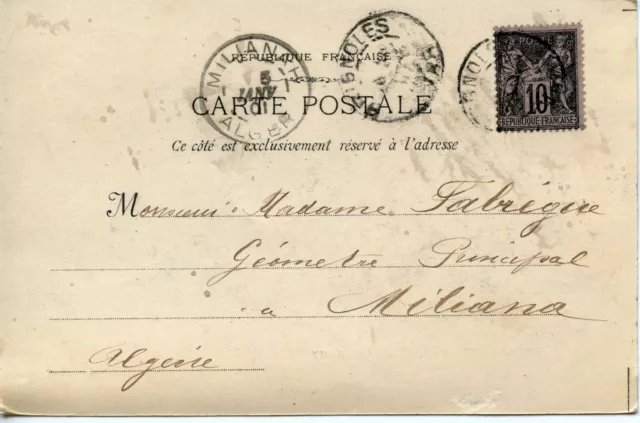 RÉPUBLIQUE FRANÇAISE
CARTE POSTALE
Ce côté est exclusivement réservé à l'adresse
MILIANAH
5
JANV
01
ALGER
BRIGNOLES
VAR
POSTE
10
REPUBLIQUE FRANÇAISE
GNOLES
Monsieur Madame Fabrégue
Géometre Principal
a Miliana
Algérie